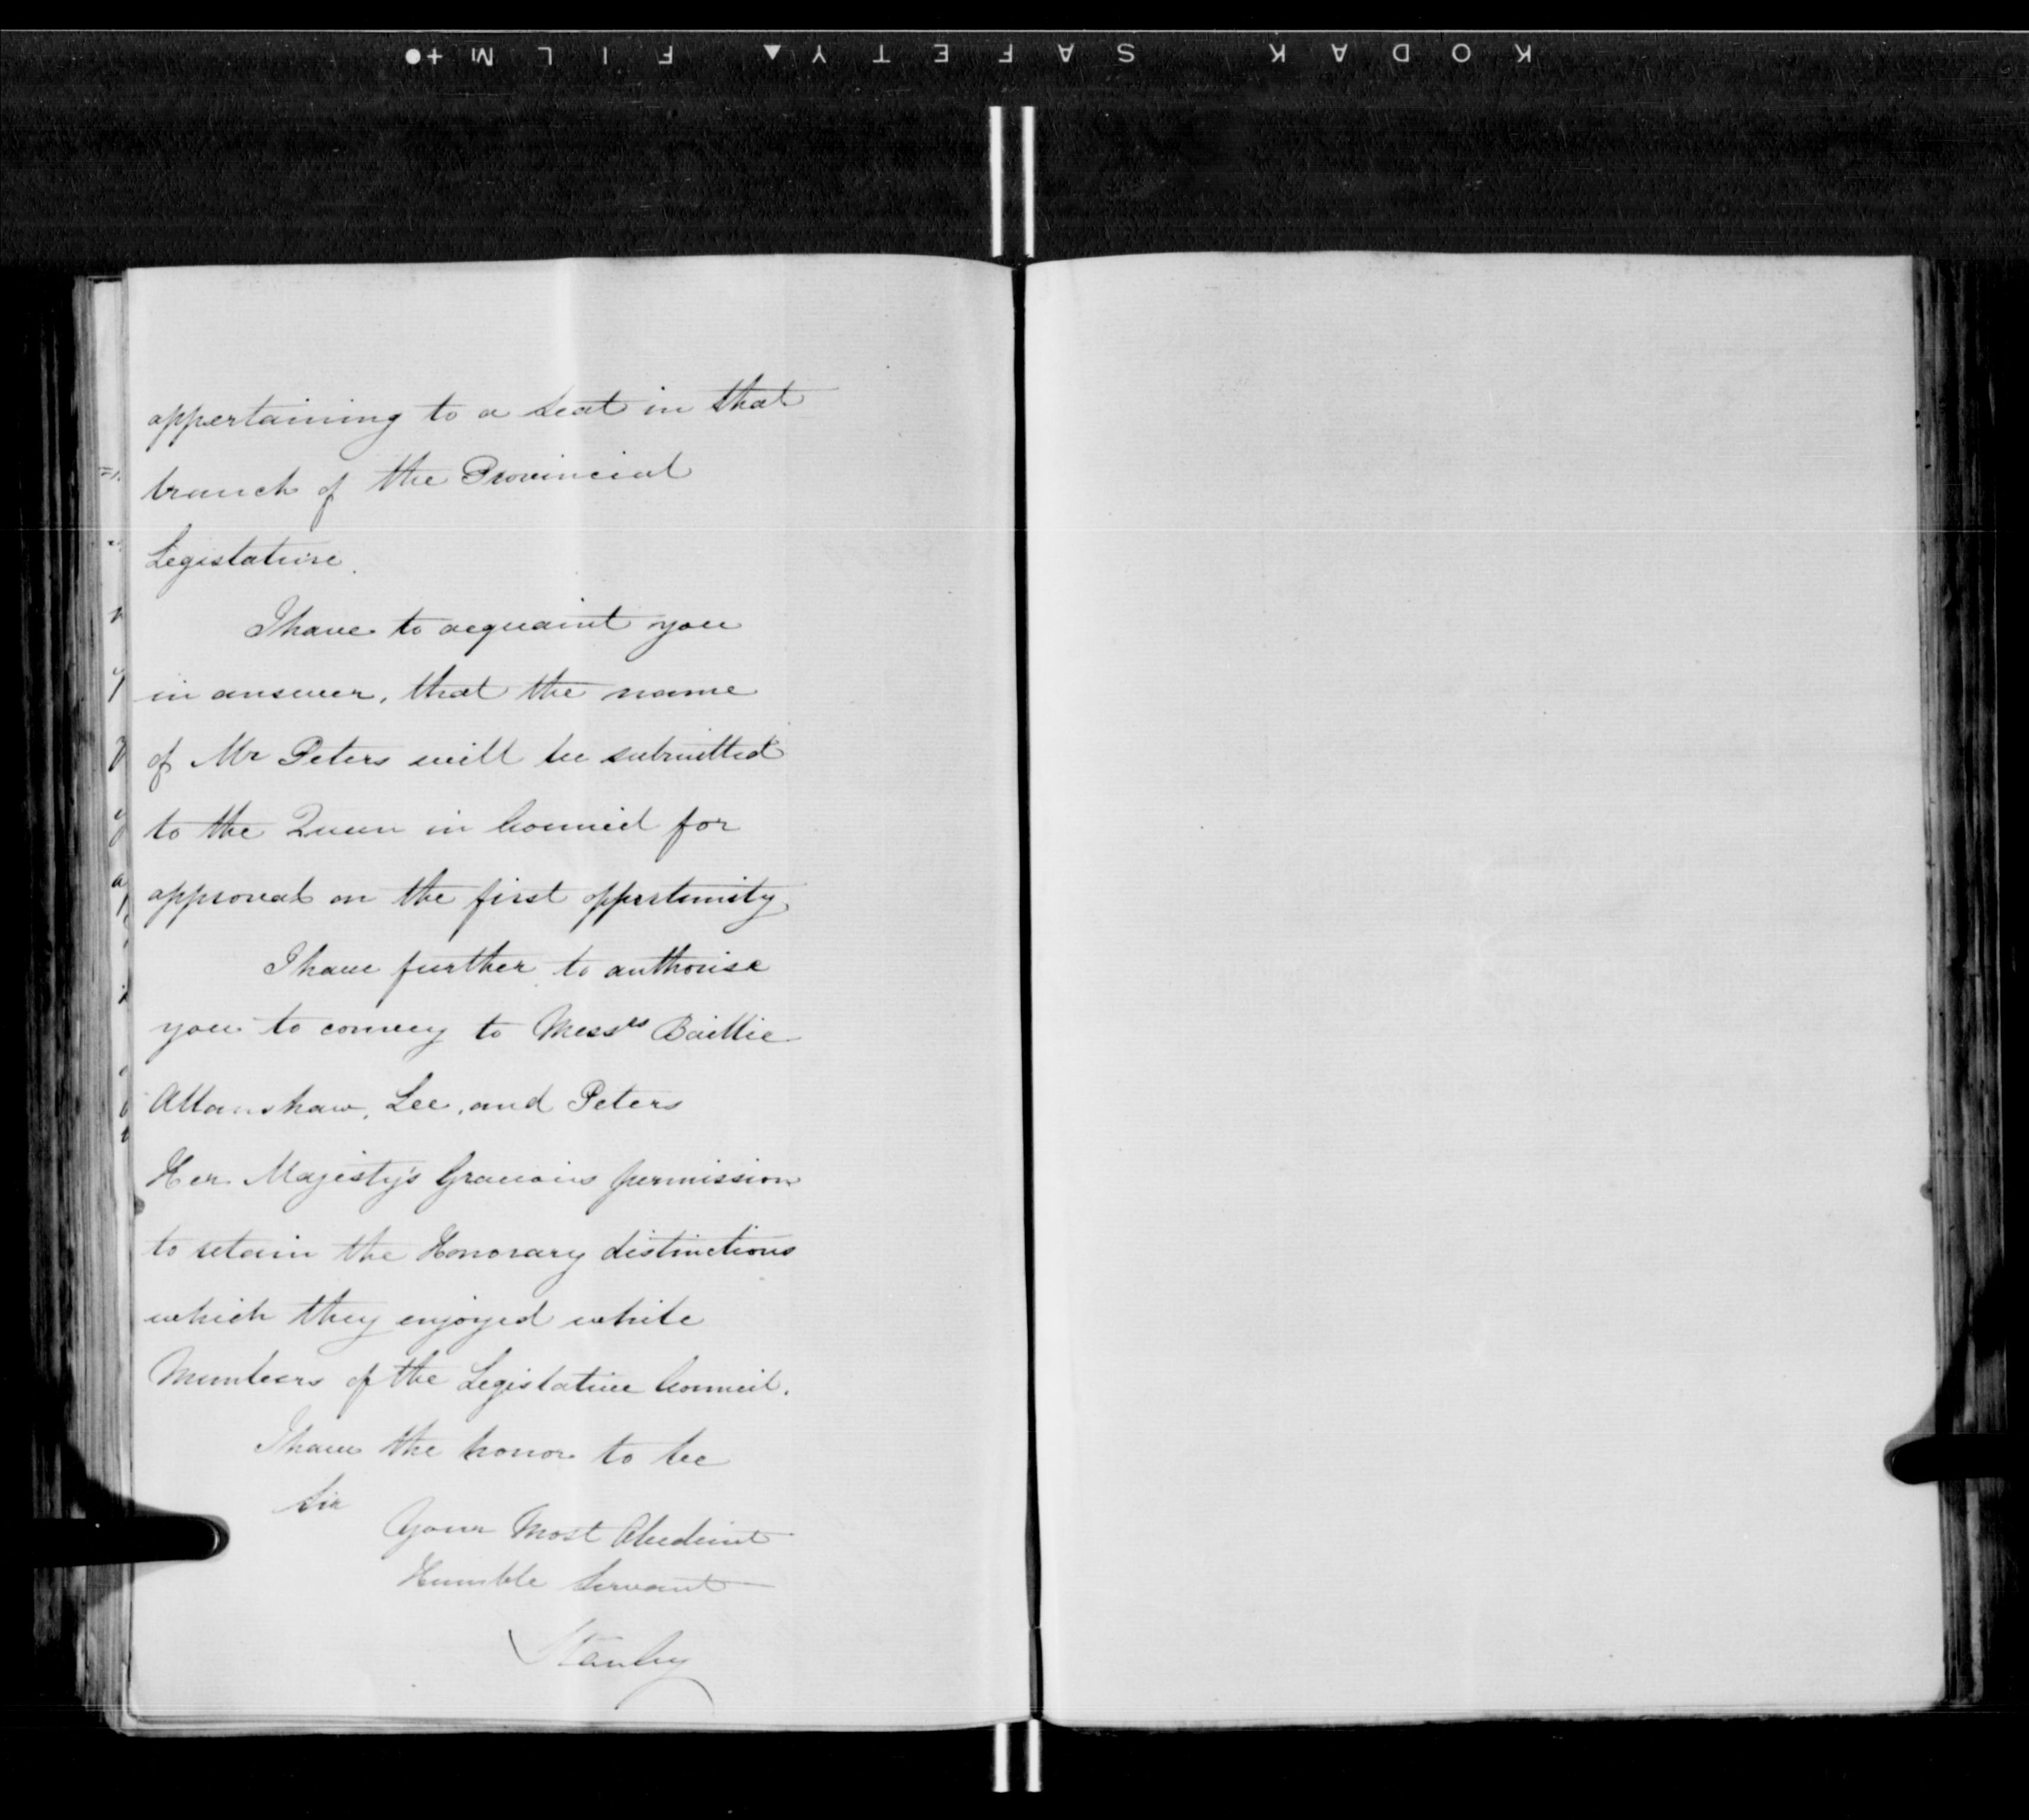 KODAK SAFETY FILM
appertaining to a seat in that
branch of the Provincial
Legislature.
I have to acquaint you
in answer, that the name
of Mr Peters will be submitted
to the Queen in Council for
approval on the first opportunity
I have further to authorise
you to convey to Messrs Baillie
Allanshaw, Lee, and Peters
Her Majesty's Gracious permission
to retain the Honorary distinctions
which they enjoyed while
Members of the Legislative Council.
I have the honor to be
Sir
Your Most Obedient
Humble Servant
Stanley